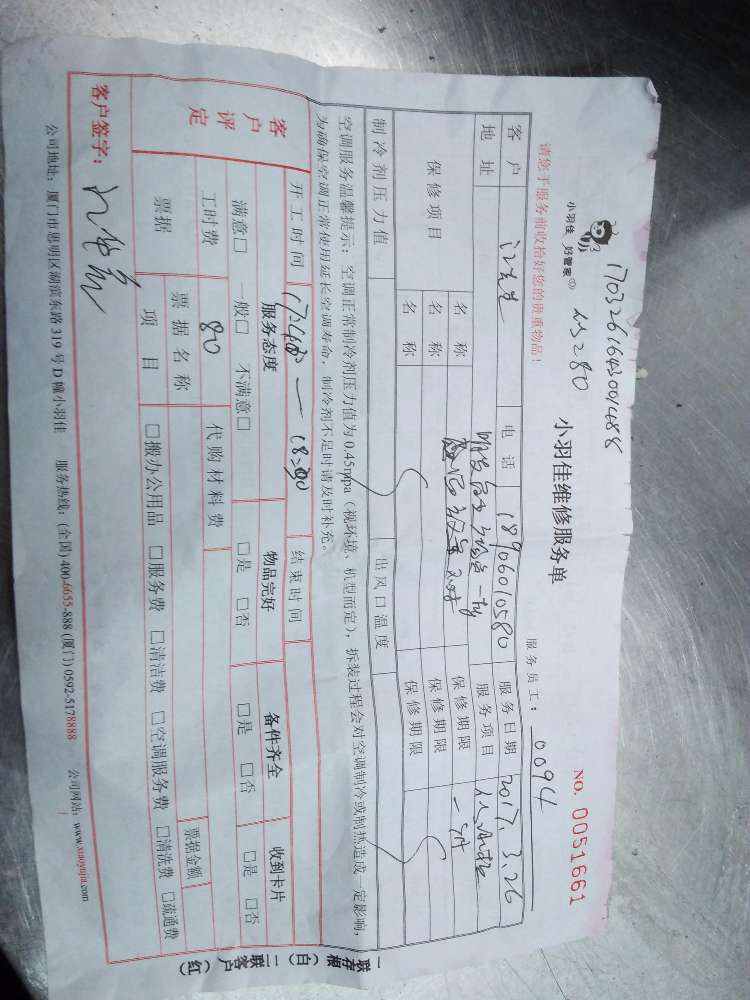 1703261643001488
小羽佳 好管家
小羽佳维修服务单
NO. 0051661
请您于服务前收拾好您的贵重物品!
服务员工: 0094
客户 江先生 电话 18906010580 服务日期 2017.3.26
地址 服务项目
保修项目 名称 保修期限
名称 保修期限
名称 保修期限
制冷剂压力值 出风口温度
空调服务温馨提示:空调正常制冷剂压力值为0.45mpa(视环境、机型而定),拆装过程会对空调制冷或制热造成一定影响,
为确保空调正常使用延长空调寿命,制冷剂不足时请及时补充。
开工时间 结束时间
客户评定 服务态度 物品完好 备件齐全 收到卡片
满意□ 一般□ 不满意□ □是 □否 □是 □否 □是 □否
工时费 80 代购材料费
票据 票据名称 票据金额
项目 □搬办公用品 □服务费 □清洁费 □空调服务费 □清洗费 □疏通费
客户签字:
公司地址:厦门市思明区湖滨东路319号D幢小羽佳 服务热线:(全国)400-6655-888 (厦门)0592-5178888 公司网站:www.xiaoyujia.com
一联存根(白) 二联客户(红)